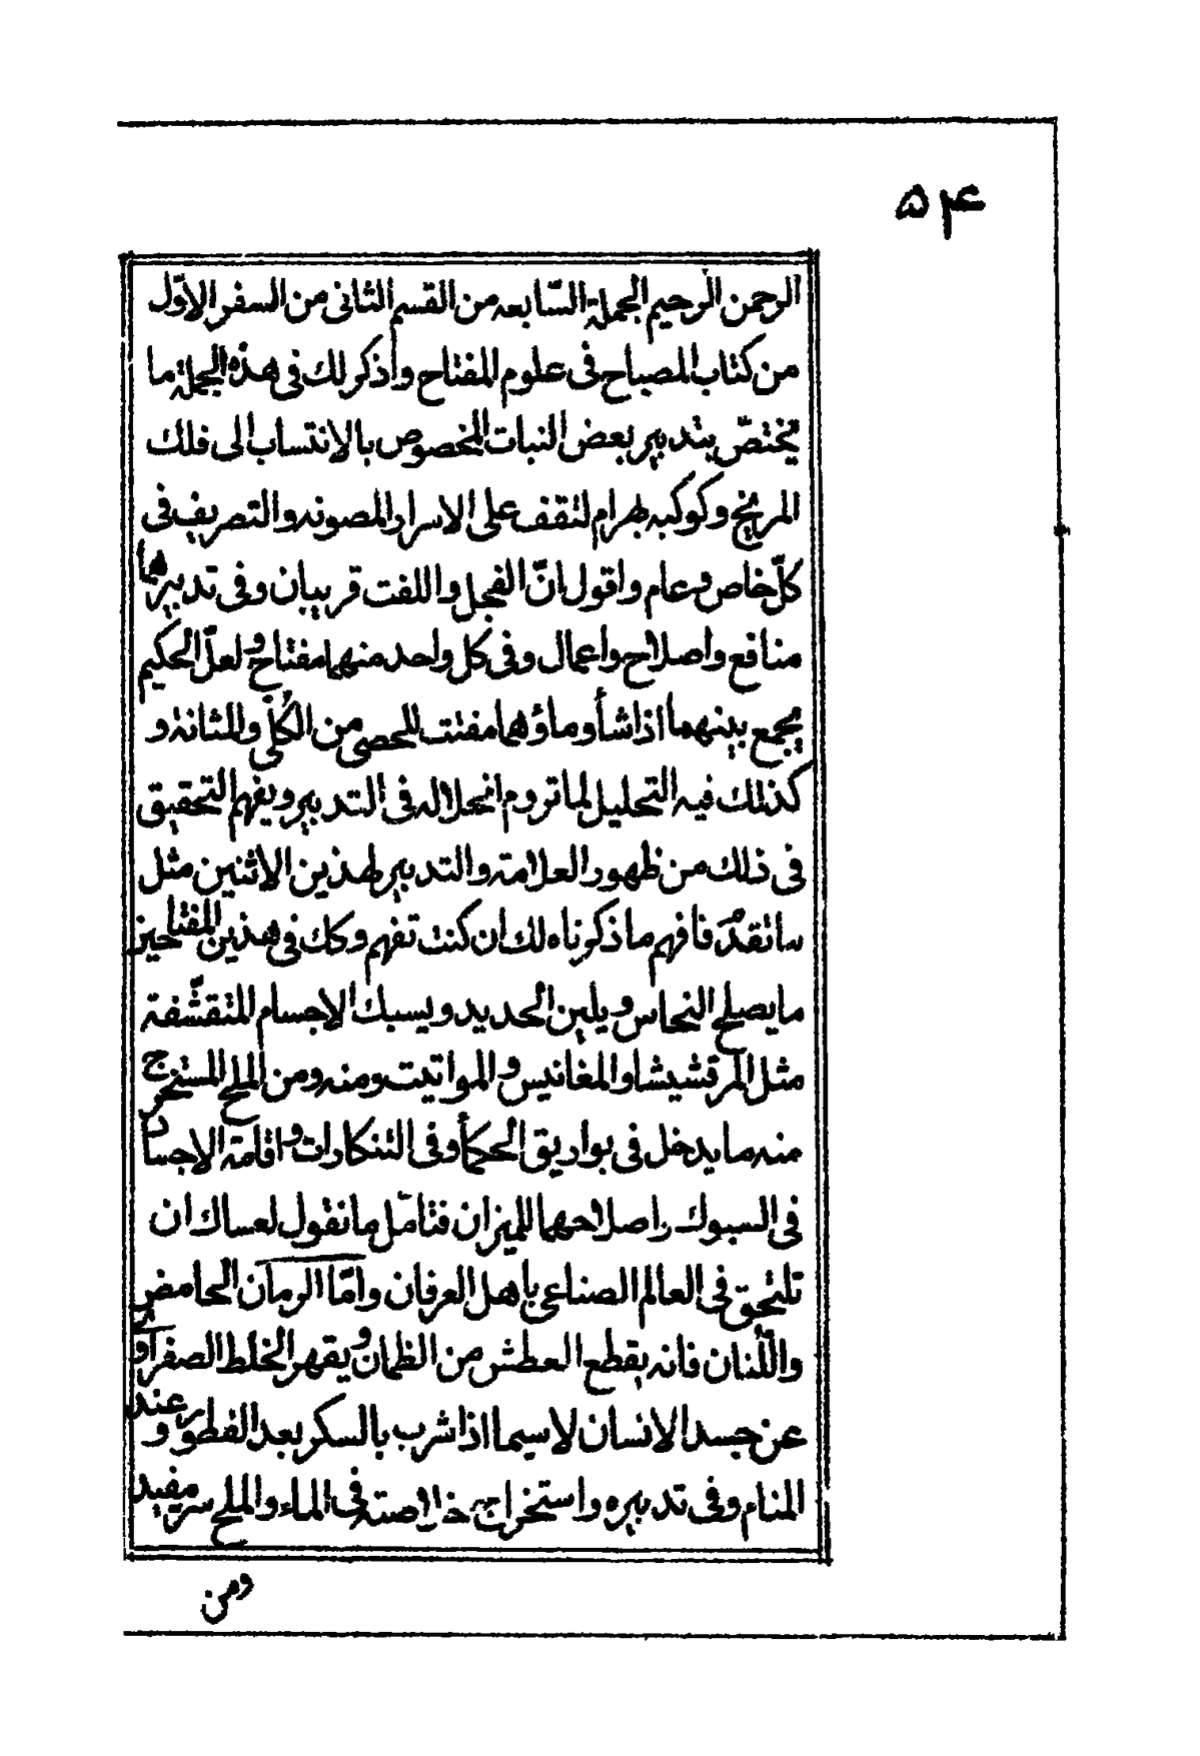 ۵۴
الرحمن الرحيم الجملة السّابعه من القسم الثانى من السفر الاوّل
من كتاب المصباح فى علوم المفتاح واذكر لك فى هذه الجملة ما
يختصّ بتدبير بعض النبات المخصوص بالانتساب الى فلك
المريخ وكوكبه بهرام لتقف على الاسرار المصونه والتصريف فى
كلّ خاص وعام واقول انّ الفجل واللفت قريبان وفى تدبيرهما
منافع واصلاح واعمال وفى كل واحد منهما مفتاح ولعلّ الحكيم
يجمع بينهما اذا شأ وماؤهما مفتت للحصى من الكُلى والمثانة و
كذلك فيه التحليل لما تروم انحلاله فى التدبير ويفهم التحقيق
فى ذلك من ظهور العلامة والتدبير لهذين الاثنين مثل
ما تقدّم فافهم ما ذكرناه لك ان كنت تفهم وكك فى هذين المفتاحين
ما يصلح النحاس ويلين الحديد ويسبك الاجسام المتقشّفة
مثل المرقشيشا والمغانيس والمواتيت ومنه ومن الملح المستخرج
منه ما يدخل فى بواريق الحكمأ وفى التنكارات واقامة الاجساد
فى السبوك واصلاحها للميزان فتامّل ما نقول لعساك ان
تلتحق فى العالم الصناعى باهل العرفان وامّا الرمان الحامض
واللّنان فانه يقطع العطش من الظمان ويقهر الخلط الصفراوى
عن جسد الانسان لاسيما اذا شرب بالسكر بعد الفطور وعند
المنام وفى تدبيره واستخراج خلاصته فى الماء والملح سر مفيد
ومن